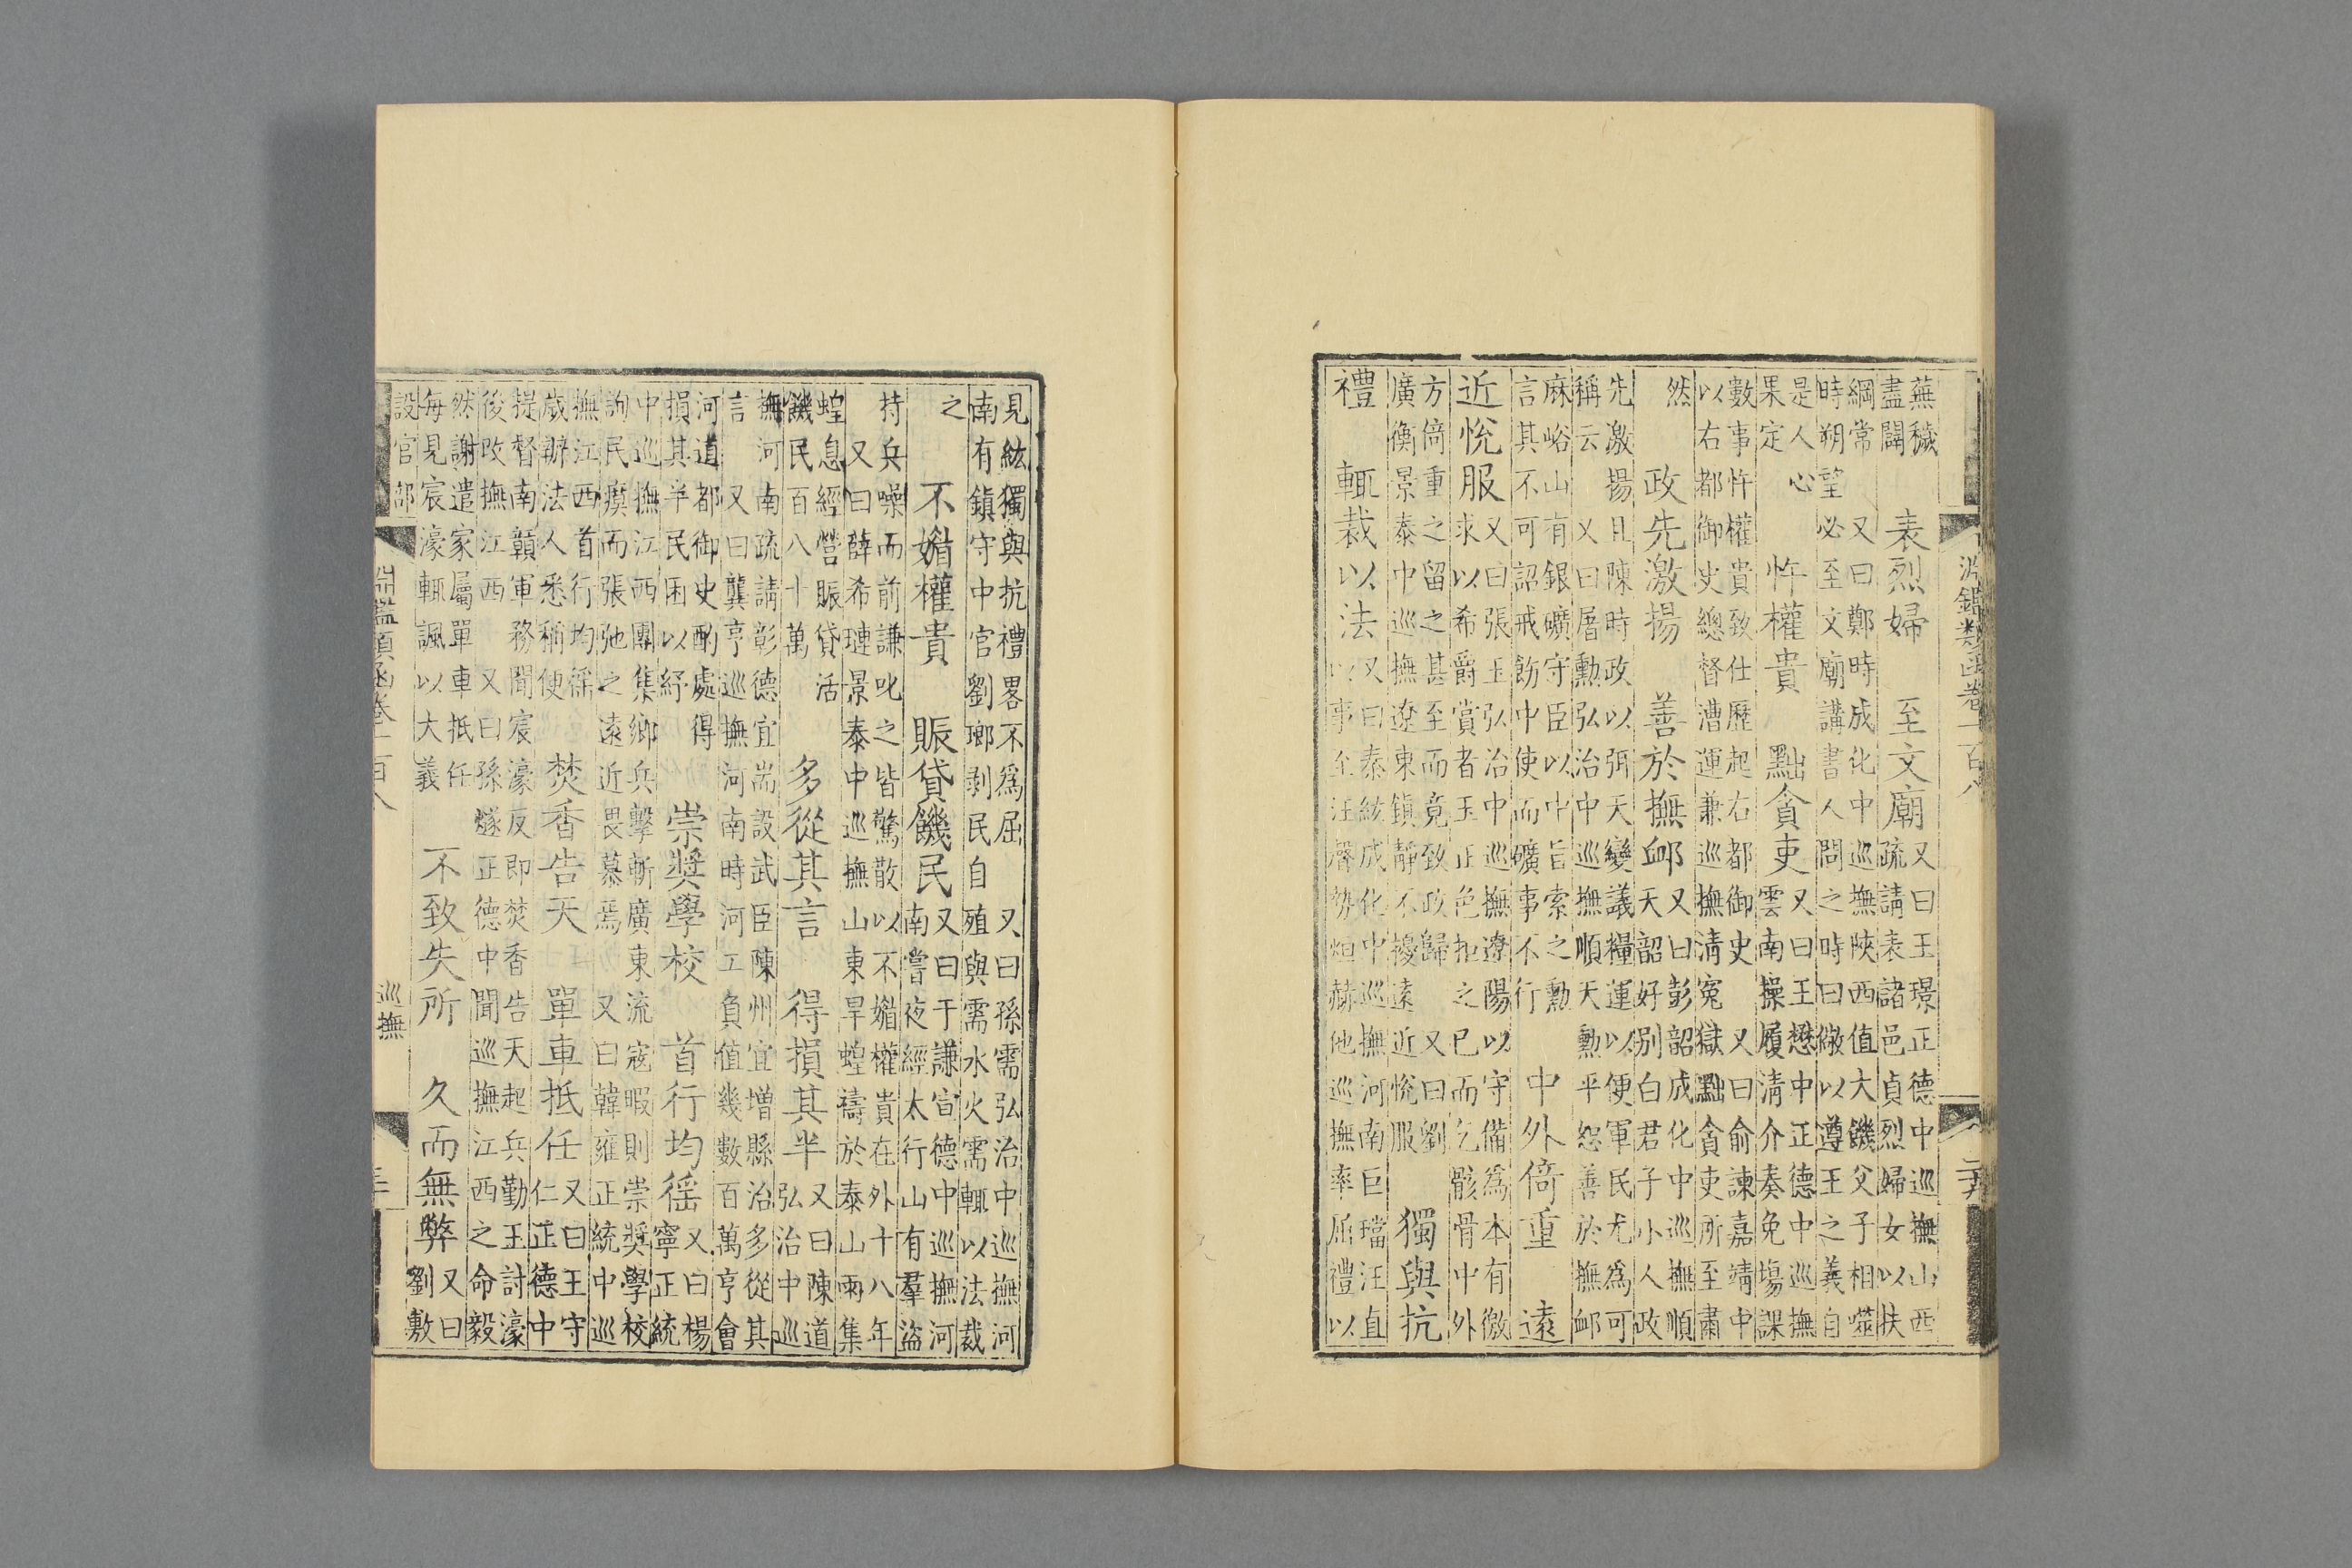 淵鑑類函卷一百八
蕪穢
盡闢
表烈婦　至文廟
又曰王璟正德中巡撫山西
疏請表諸邑貞烈婦女以扶
綱常　又曰鄭時成化中巡撫陝西值大饑父子相噬
時朔望必至文廟講書人問之時曰儆以遵王之義自
是人心
果定
忤權貴　黜貪吏
又曰王懋中正德中巡撫
雲南操履清介奏免塲課
數事忤權貴致仕歷起右都御史　又曰俞諫嘉靖中
以右都御史總督漕運兼巡撫清冤獄黜貪吏所至肅
然
政先激揚　善於撫䘏
又曰彭韶成化中巡撫順
天韶好別白君子小人政
先激揚且陳時政以弭天變議糧運以便軍民尤為可
稱云　又曰屠勳弘治中巡撫順天勳平恕善於撫䘏
麻峪山有銀礦守臣以中旨索之勳
言其不可詔戒飭中使而礦事不行
中外倚重　遠
近悅服
又曰張玉弘治中巡撫遼陽以守備為本有徼
求以希爵賞者玉正色拒之已而乞骸骨中外
方倚重之留之甚至而竟致政歸　又曰劉
廣衡景泰中巡撫遼東鎮靜不擾遠近悅服
獨與抗
禮　輒裁以法
又曰秦紘成化中巡撫河南巨璫汪直
以事至汪聲勢烜赫他巡撫率屈禮以
見紘獨與抗禮畧不爲屈　又曰孫需弘治中巡撫河
南有鎮守中官劉瑯剥民自殖與需水火需輒以法裁
之
不媚權貴　賑貸饑民
又曰于謙宣德中巡撫河
南嘗夜經太行山有羣盜
持兵噪而前謙叱之皆驚散以不媚權貴在外十八年
又曰薛希璉景泰中巡撫山東旱蝗禱於泰山雨集
蝗息經營賑貸活
饑民百八十萬
多從其言　得損其半
又曰陳道
弘治中巡
撫河南疏請彰德宜耑設武臣陳州宜增縣治多從其
言　又曰龔亨巡撫河南時河工負值幾數百萬亨會
河道都御史酌處得
損其半民困以紓
崇獎學校　首行均徭
又曰楊
寧正統
中巡撫江西團集鄉兵擊斬廣東流寇暇則崇獎學校
詢民瘼而張弛之遠近畏慕焉　又曰韓雍正統中巡
撫江西首行均徭
歲辦法人悉稱便
焚香告天　單車抵任
又曰王守
仁正德中
提督南贛軍務聞宸濠反即焚香告天起兵勤王討濠
後改撫江西　又曰孫燧正德中聞巡撫江西之命毅
然謝遣家屬單車抵任
每見宸濠輒諷以大義
不致失所　久而無弊
又曰
劉敷
設官部
淵鑑類函卷一百八　巡撫